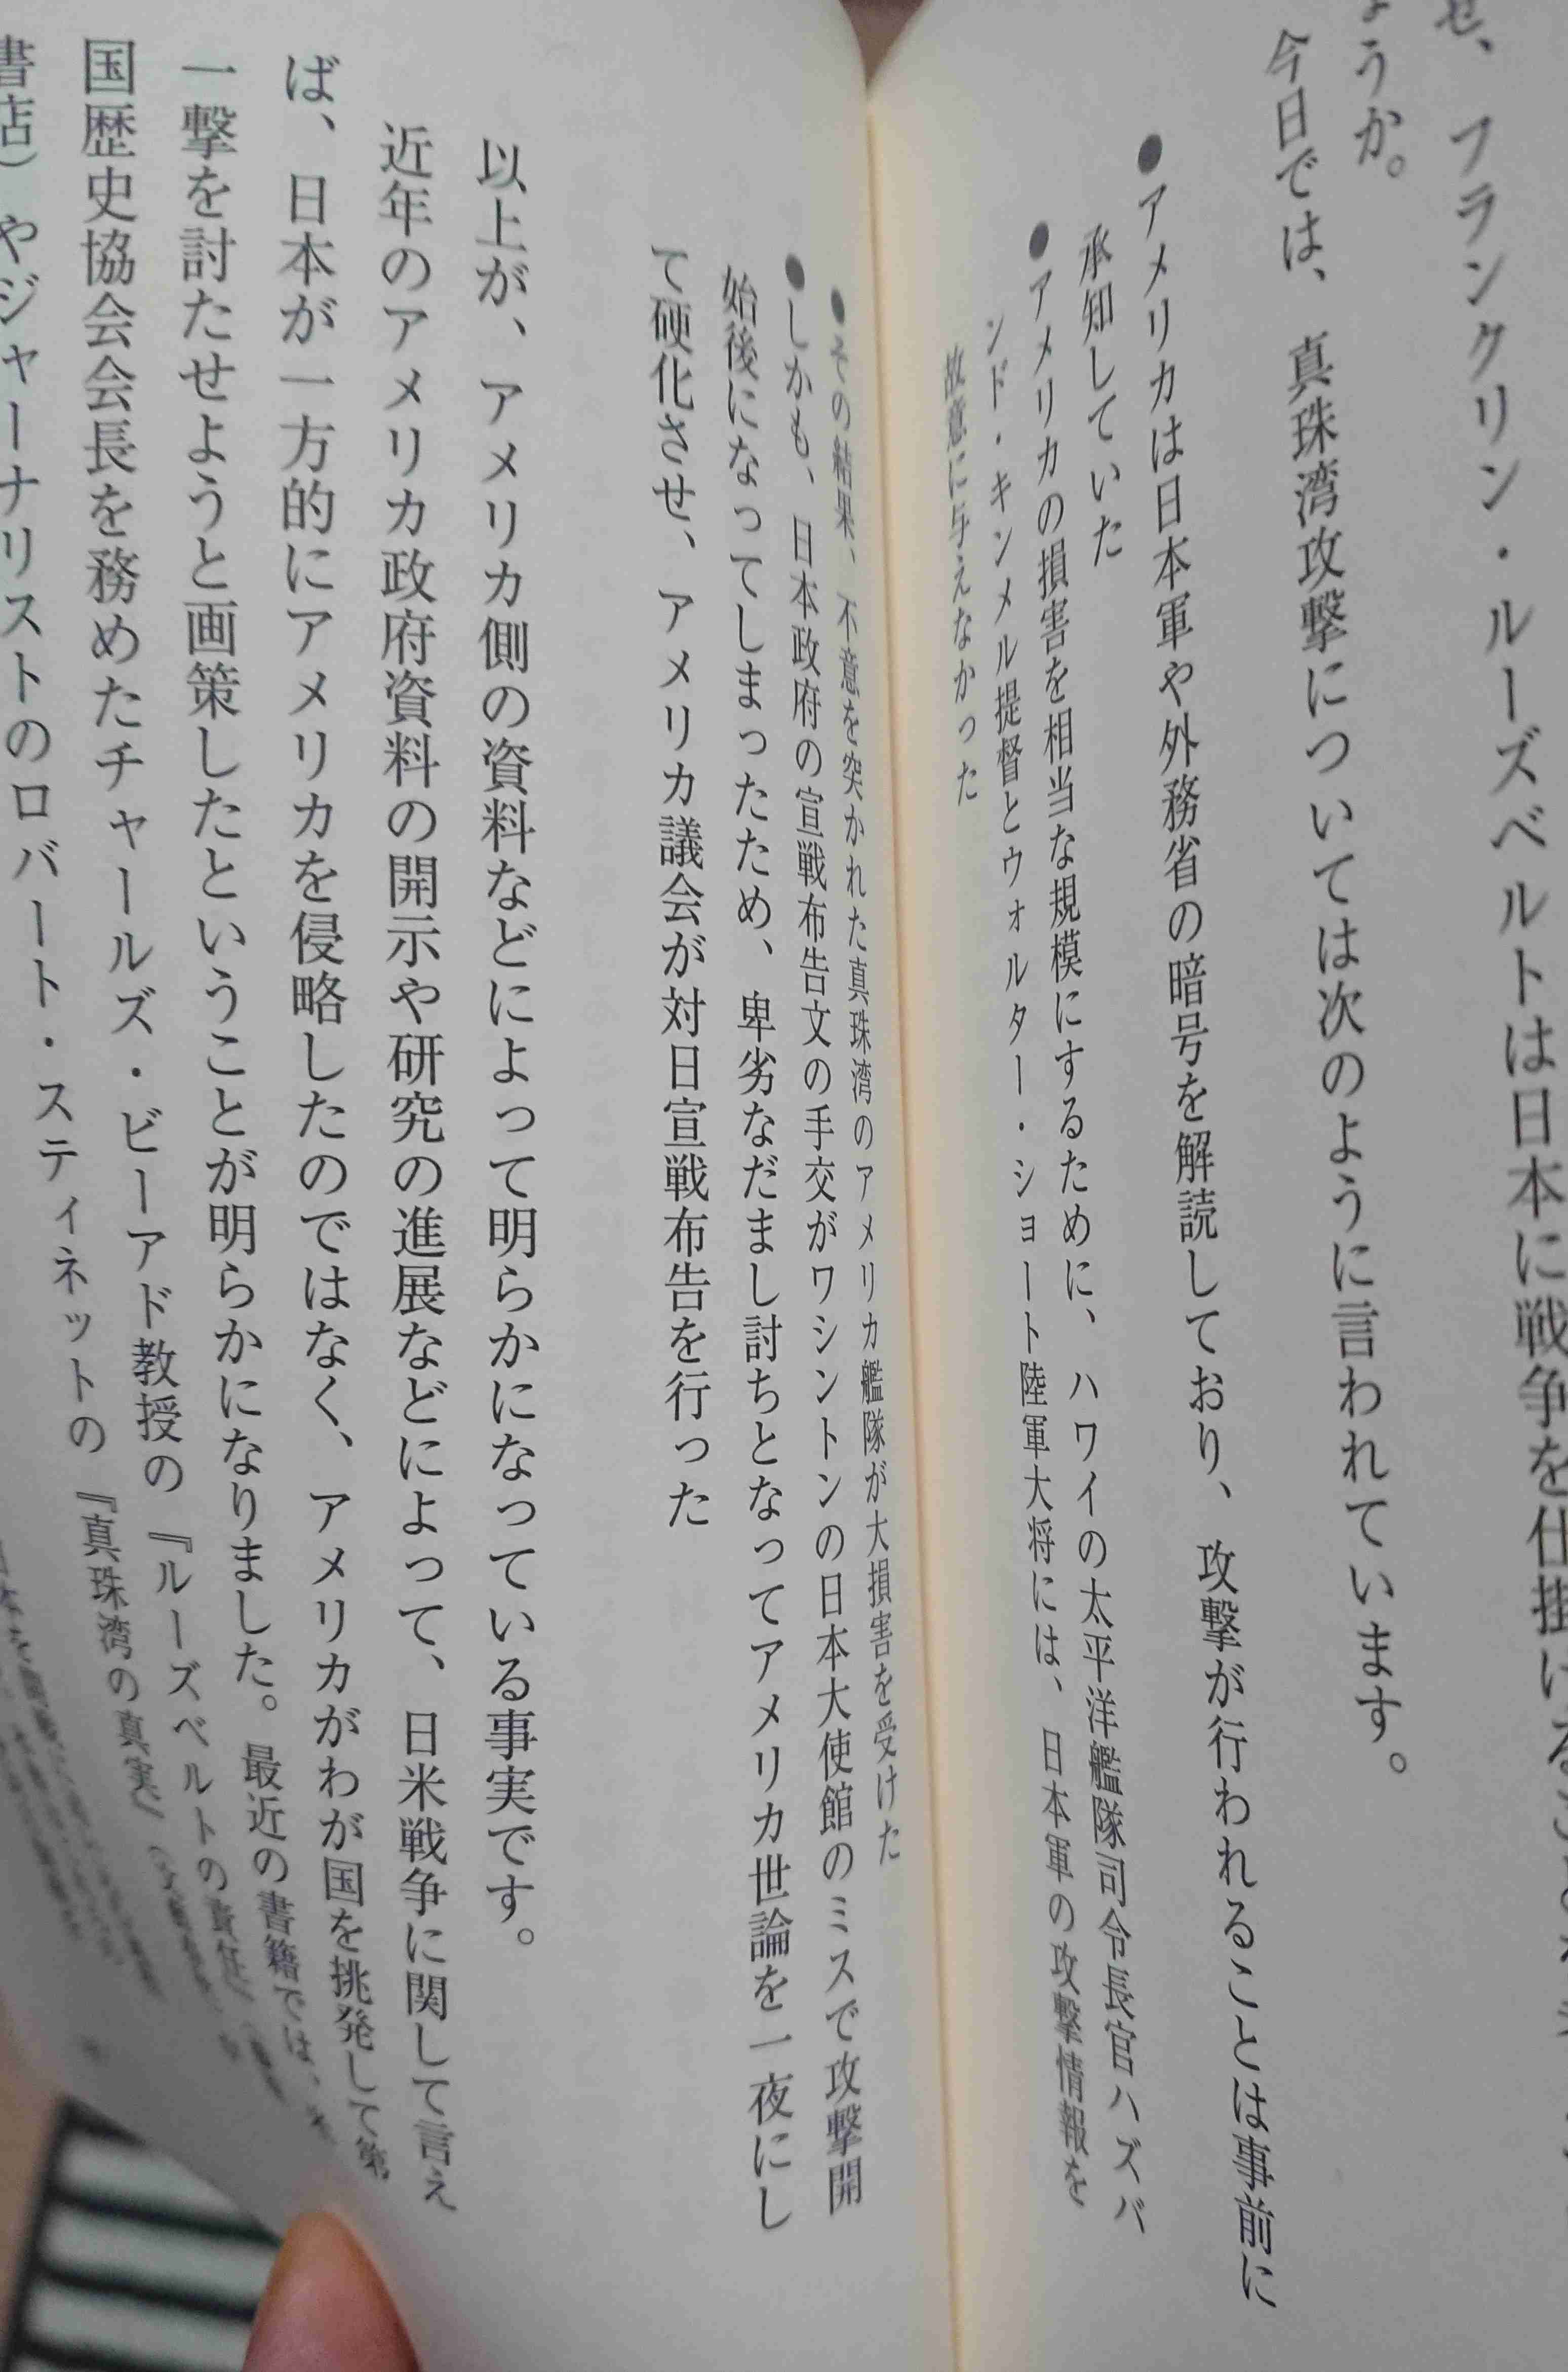 せ、フランクリン・ルーズベルトは日本に戦争を仕掛ける
ょうか。
今日では、真珠湾攻撃については次のように言われています。
●アメリカは日本軍や外務省の暗号を解読しており、攻撃が行われることは事前に
承知していた
●アメリカの損害を相当な規模にするために、ハワイの太平洋艦隊司令長官ハズバ
ンド・キンメル提督とウォルター・ショート陸軍大将には、日本軍の攻撃情報を
故意に与えなかった
●その結果、不意を突かれた真珠湾のアメリカ艦隊が大損害を受けた
●しかも、日本政府の宣戦布告文の手交がワシントンの日本大使館のミスで攻撃開
始後になってしまったため、卑劣なだまし討ちとなってアメリカ世論を一夜にし
て硬化させ、アメリカ議会が対日宣戦布告を行った
以上が、アメリカ側の資料などによって明らかになっている事実です。
近年のアメリカ政府資料の開示や研究の進展などによって、日米戦争に関して言え
ば、日本が一方的にアメリカを侵略したのではなく、アメリカがわが国を挑発して第
一撃を討たせようと画策したということが明らかになりました。最近の書籍では、
国歴史協会会長を務めたチャールズ・ビーアド教授の『ルーズベルトの責任』
書店）やジャーナリストのロバート・スティネットの『真珠湾の真実』